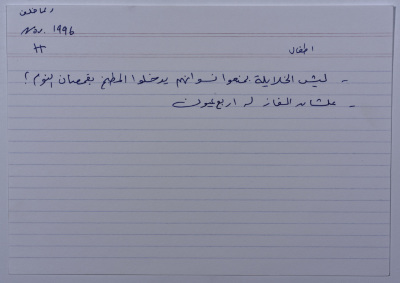 Nov. 1996
++
اطفال
- ليش الخلايلة بمنعوا نسوانهم يدخلوا المطبخ بقمصان النوم؟
- علشان الغاز له اربع عيون